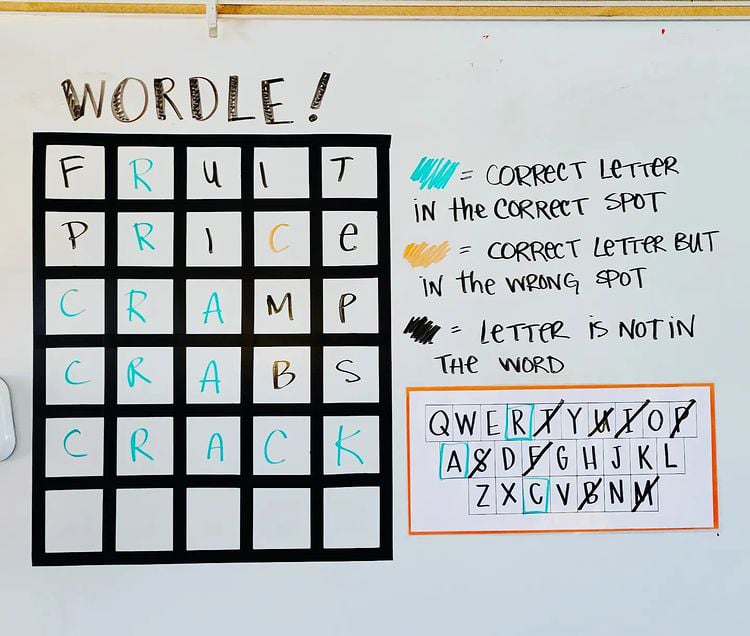 WORDLE!
FRUIT
PRICe
CRAMP
CRABS
CRACK
= CORRECT LETTER
IN the CORRECT SPOT
= CORRECT LETTER BUT
IN the WRONG SPOT
= LETTER IS NOT IN
THE WORD
QWERTYUIOP
ASDFGHJKL
ZXCVBNM